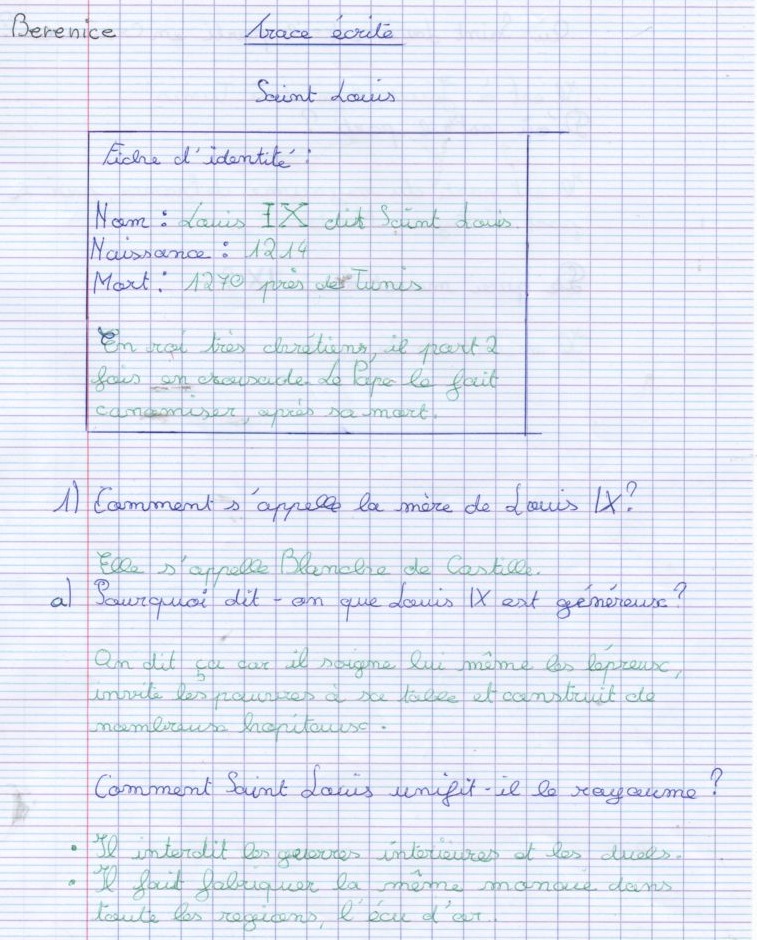 Berenice
Trace écrite
Saint Louis
Fiche d'identité :
Nom : Louis IX dit Saint Louis
Naissance : 1214
Mort : 1270 près de Tunis
En roi très chrétiens, il part 2
fois en crousade. Le Pape le fait
canamiser, après sa mort.
1) Comment s'appelle la mère de Louis IX ?
Elle s'appelle Blanche de Castille.
a) Pourquoi dit-on que Louis IX est généreux ?
On dit ça car il soigne lui même les lépreux,
invite les pauvres à sa table et construit de
nombreux hopitaux.
Comment Saint Louis unifit-il le rayaume ?
• Il interdit les guerres intérieures et les duels.
• Il fait fabriquer la même monaie dans
toute les regions, l'écu d'or.